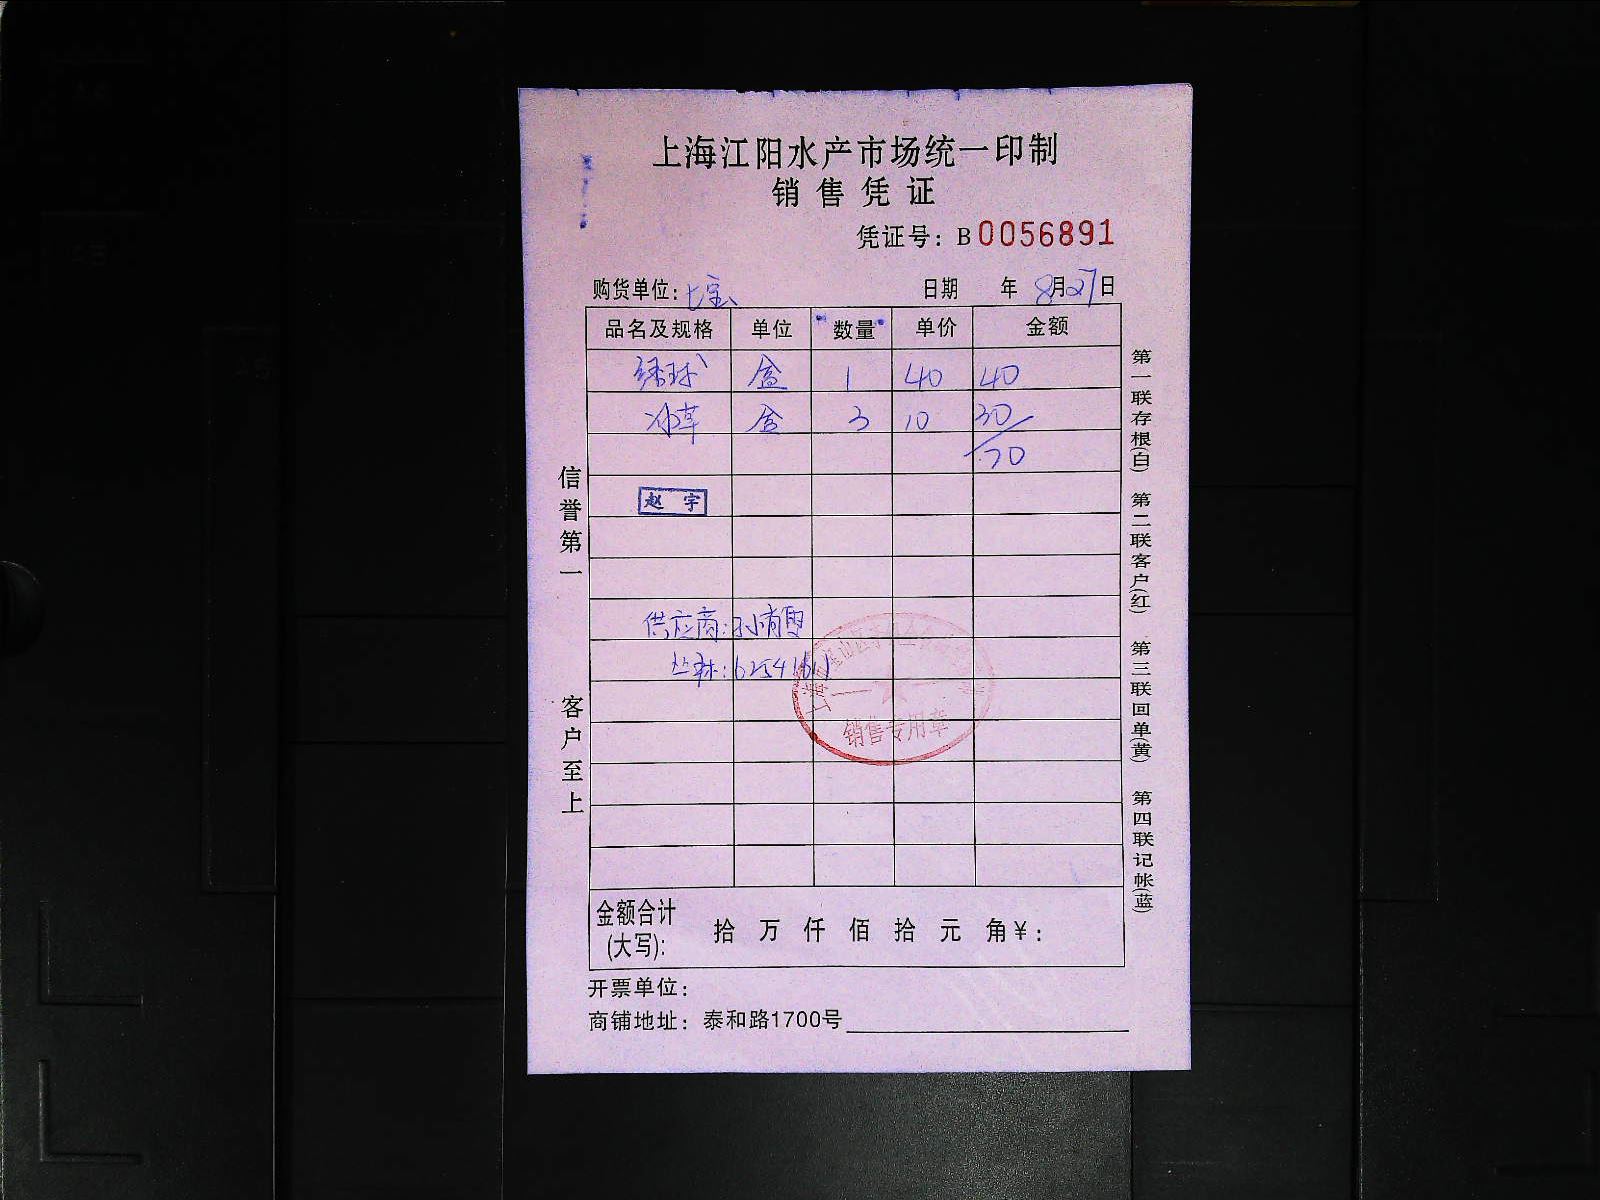 上海江阳水产市场统一印制
销售凭证
凭证号：B0056891
购货单位：七宝 日期 年 8月27日
品名及规格 单位 数量 单价 金额
绣球 盒 1 40 40
冰草 盒 3 10 30
70
赵宇
供应商：孙情雪
丛林：6254161
销售专用章
金额合计(大写)： 拾 万 仟 佰 拾 元 角￥：
开票单位：
商铺地址：泰和路1700号
信誉第一 客户至上
第一联存根(白) 第二联客户(红) 第三联回单(黄) 第四联记帐(蓝)